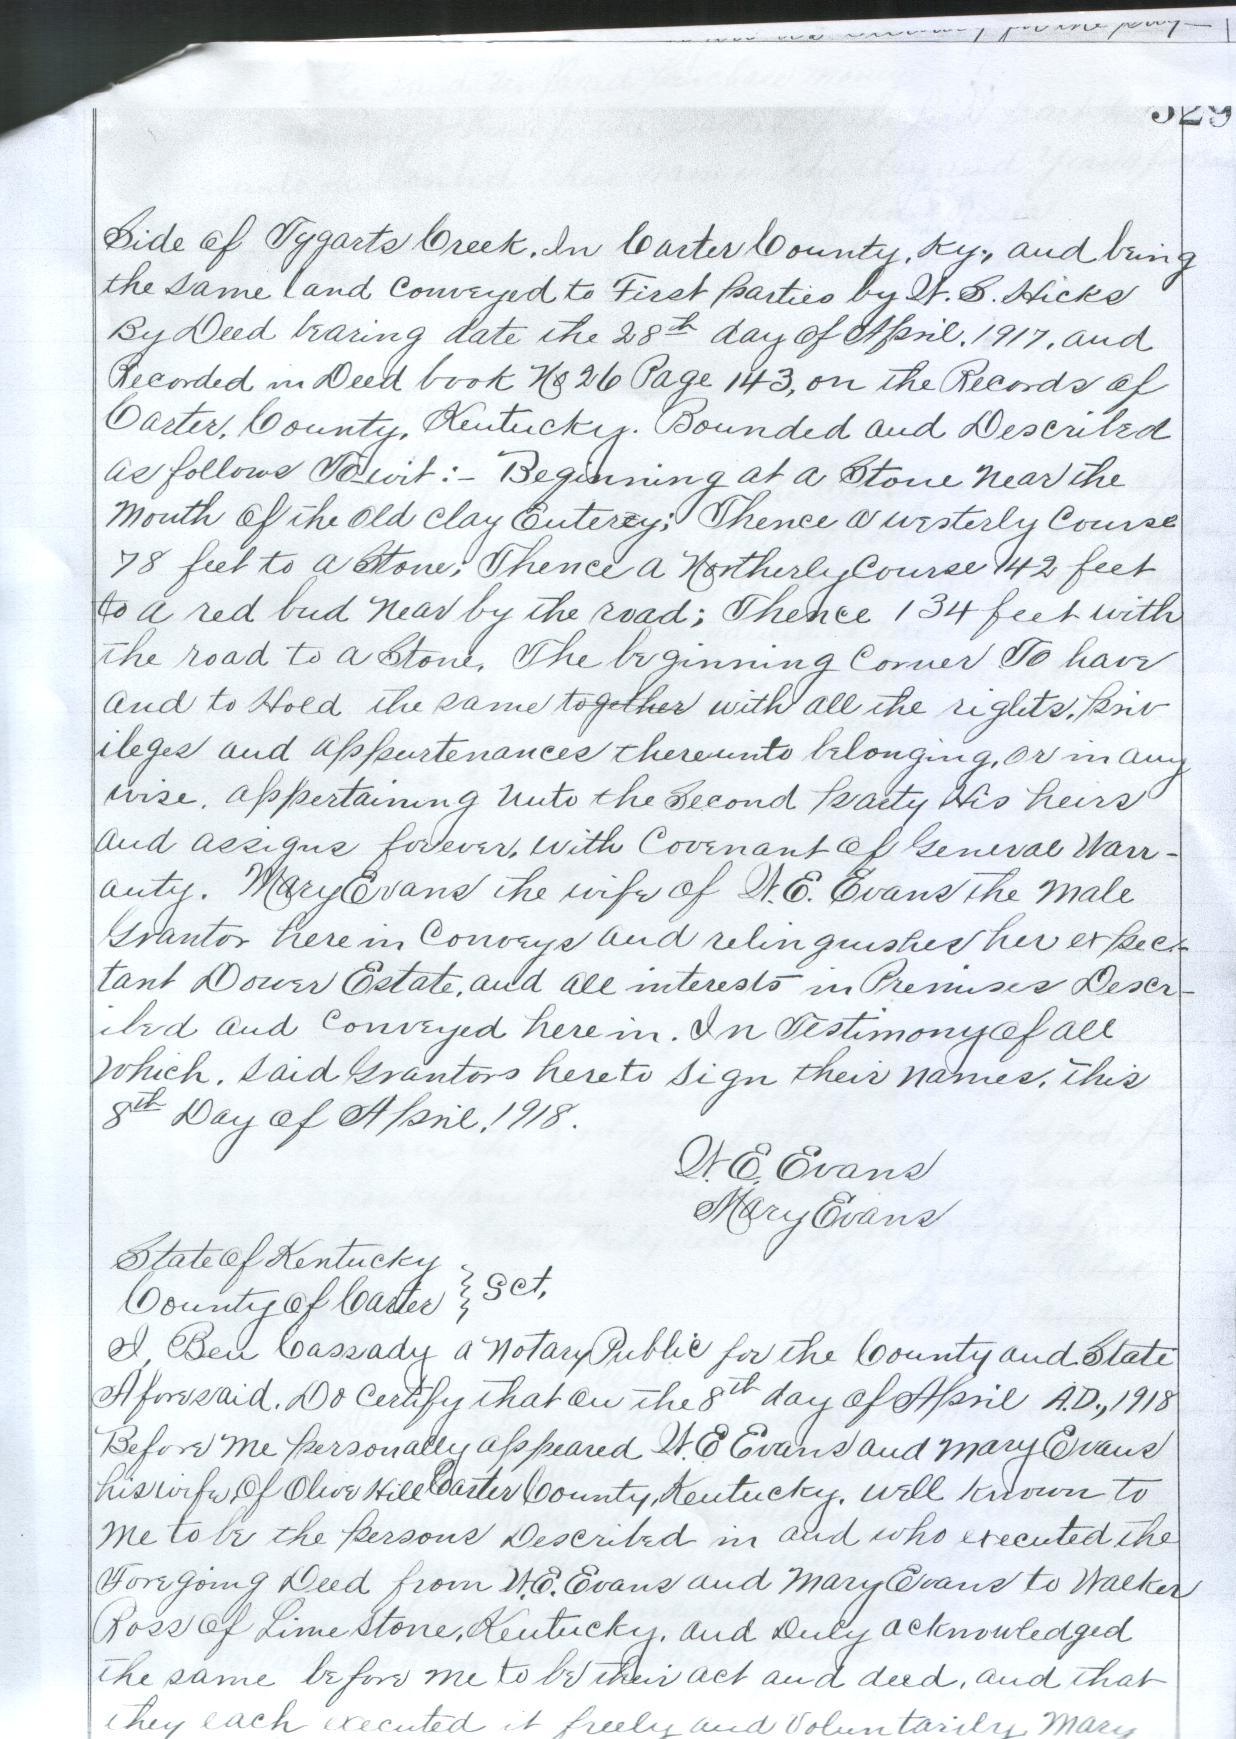 329
Side of Tygarts Creek. In Carter County, Ky., and being
the same land conveyed to First parties by W. S. Hicks
By Deed bearing date the 28th day of April. 1917. and
Recorded in Deed book No 26 Page 143, on the Records of
Carter. County. Kentucky. Bounded and Described
as follows To wit:- Beginning at a Stone near the
Mouth of the old clay Enterey; Thence a westerly Course
78 feet to a Stone; Thence a Northerly Course 142 feet
to a red bud near by the road; Thence 134 feet with
the road to a Stone. The beginning Corner To have
and to Hold the same together with all the rights. priv
ileges and appurtenances thereunto belonging, or in any
wise. appertaining unto the Second party His heirs
and assigns forever. with Covenant of General Warr-
anty. Mary Evans the wife of W.E. Evans the Male
Grantor herein Conveys and relinguishes her expec-
tant Dower Estate, and all interests in Premises Descr-
ibed and Conveyed herein. In Testimony of all
which. said Grantors hereto sign their names. this
8th Day of April, 1918.
W. E. Evans
Mary Evans
State of Kentucky
County of Carter } Sct.
I, Ben Cassady a Notary Public for the County and State
Aforesaid. Do Certify that on the 8th day of April A.D., 1918
Before Me personally appeared W. E Evans and Mary Evans
his wife, Of Olive Hill Carter County, Kentucky. well known to
Me to be the persons Described in and who executed the
Foregoing Deed from W.E. Evans and Mary Evans to Walker
Ross of Lime stone, Kentucky. and Duly acknowledged
the same before me to be their act and deed, and that
they each executed it freely and Voluntarily. Mary